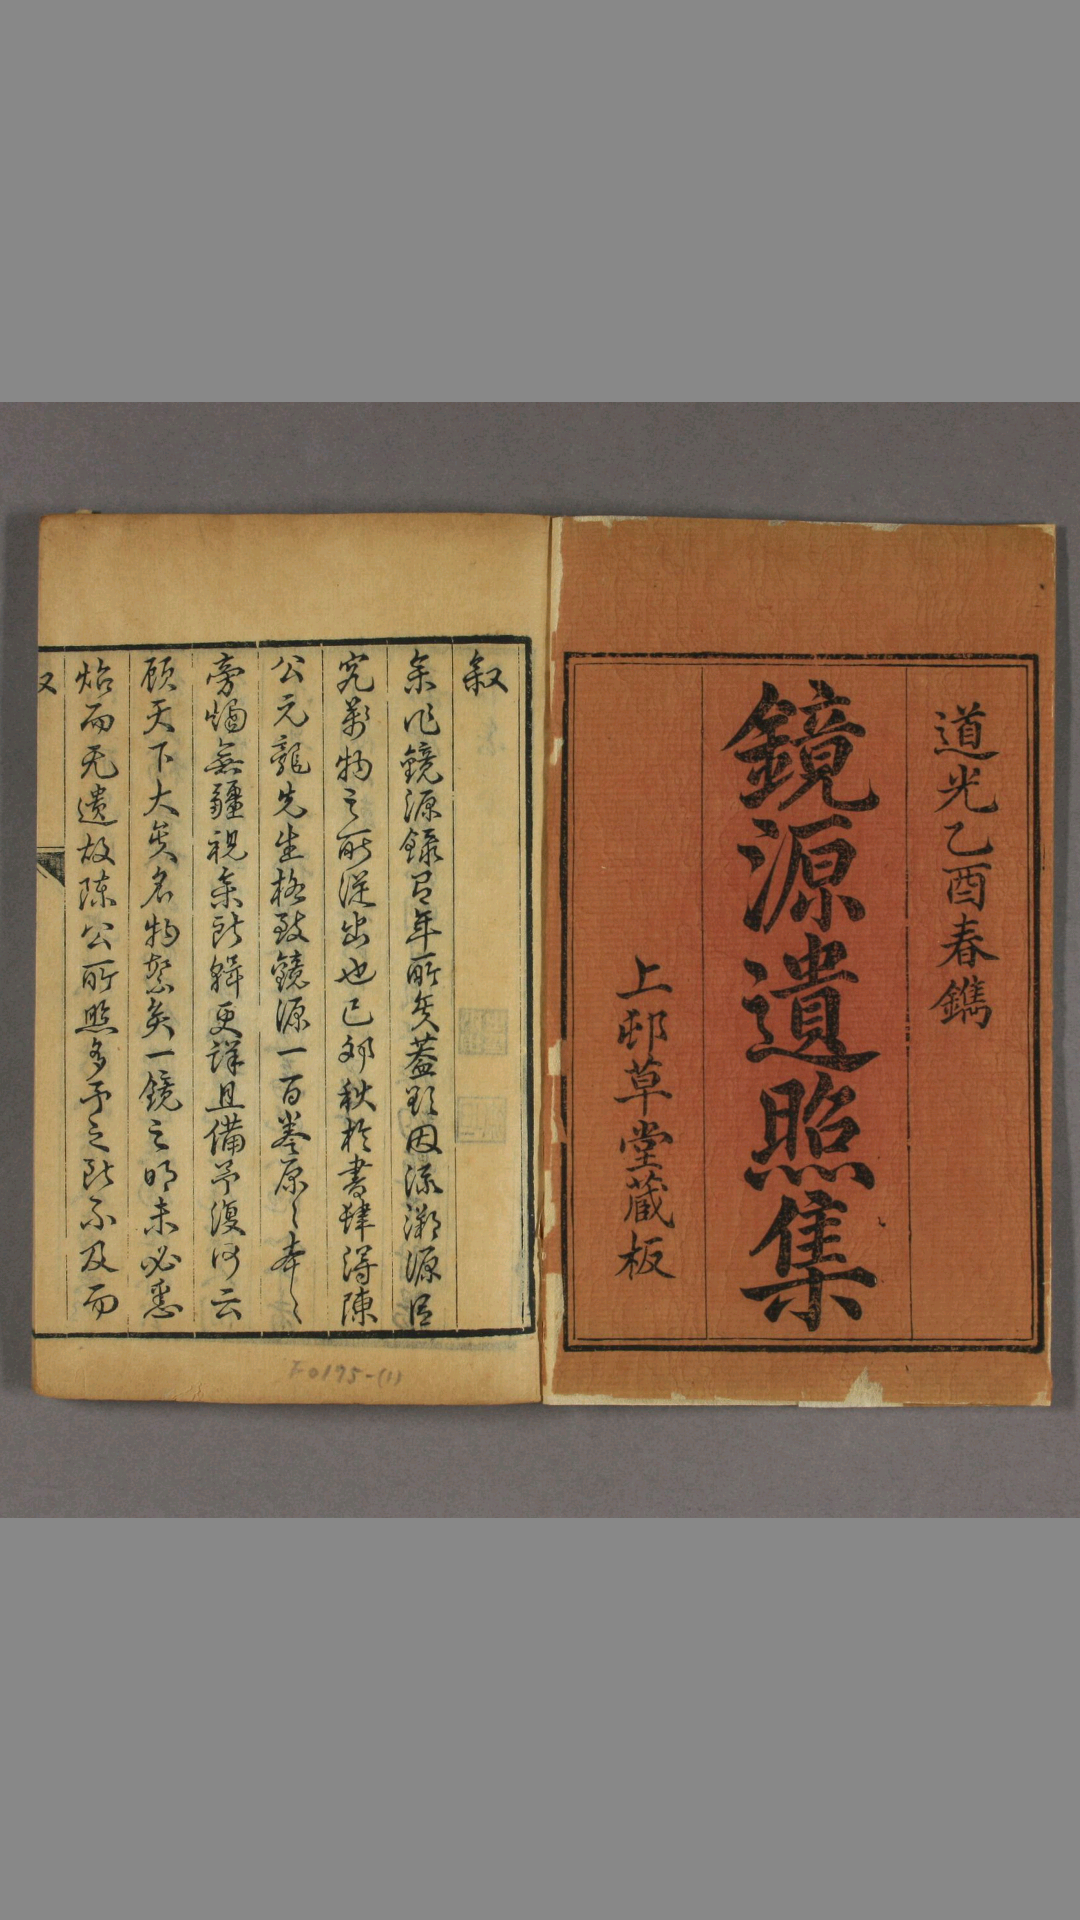 道光乙酉春鐫
鏡源遺照集
上邨草堂蔵板
叙
余作鏡源錄有年所矣蓋欲因流溯源以
究萬物之所從出也己卯秋於書肆得陳
公元龍先生格致鏡源一百卷原〻本〻
旁燭無疆視余所輯更詳且備予復何云
顧天下大矣名物繁矣一鏡之明未必悉
炤而无遺故陳公所照多予之所不及而